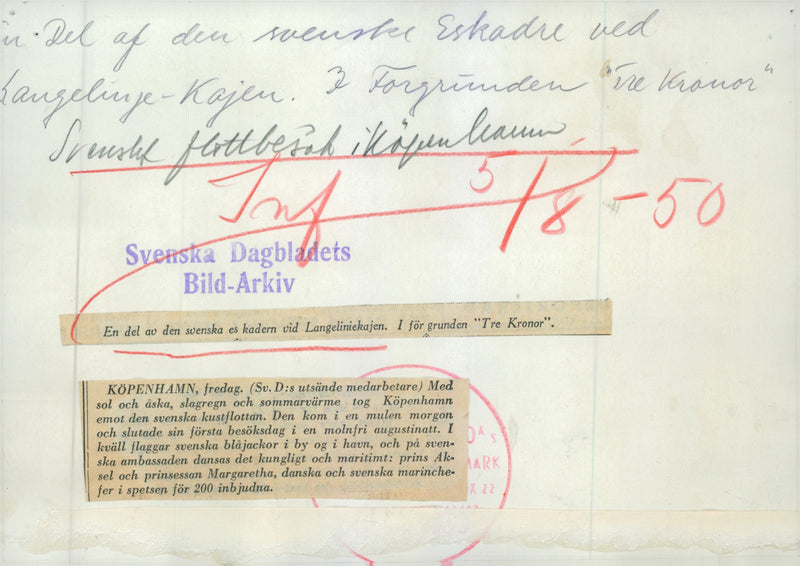 n Del af den svenske Eskadre ved
Langelinje-Kajen. I Forgrunden "Tre Kronor"
Svenskt flottbesök i Köpenhamn
Inf 5/8-50
Svenska Dagbladets
Bild-Arkiv
En del av den svenska es kadern vid Langeliniekajen. I för grunden "Tre Kronor".
KÖPENHAMN, fredag. (Sv. D:s utsände medarbetare) Med
sol och åska, slagregn och sommarvärme tog Köpenhamn
emot den svenska kustflottan. Den kom i en mulen morgon
och slutade sin första besöksdag i en molnfri augustinatt. I
kväll flaggar svenska blåjackor i by og i havn, och på sven-
ska ambassaden dansas det kungligt och maritimt: prins Ak-
sel och prinsessan Margaretha, danska och svenska marinche-
fer i spetsen för 200 inbjudna.
MARK
X 22